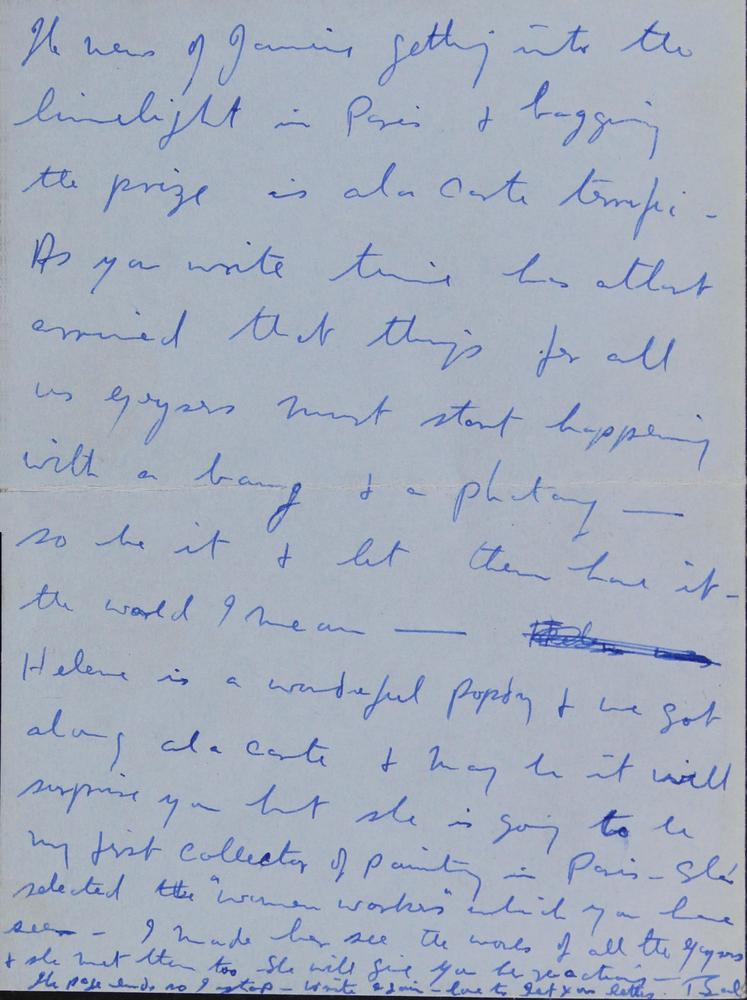 The news of Jamini getting into the
limelight in Paris & bagging
the prize is ala carte terrific -
As you write time has atlast
arrived that things for all
us geysers must start happening
with a bang & a phatang —
so be it & let them have it -
the world I mean —
Helene is a wonderful & we got
along ala carte & may be it will
surprise you but she is going to be
my first collector of painting in Paris - She
selected the "women workers" which you have
seen - I made her see the works of all the geysers
& she met them too. She will give you her reactions —
The page ends so I stop - write again - love to letter.